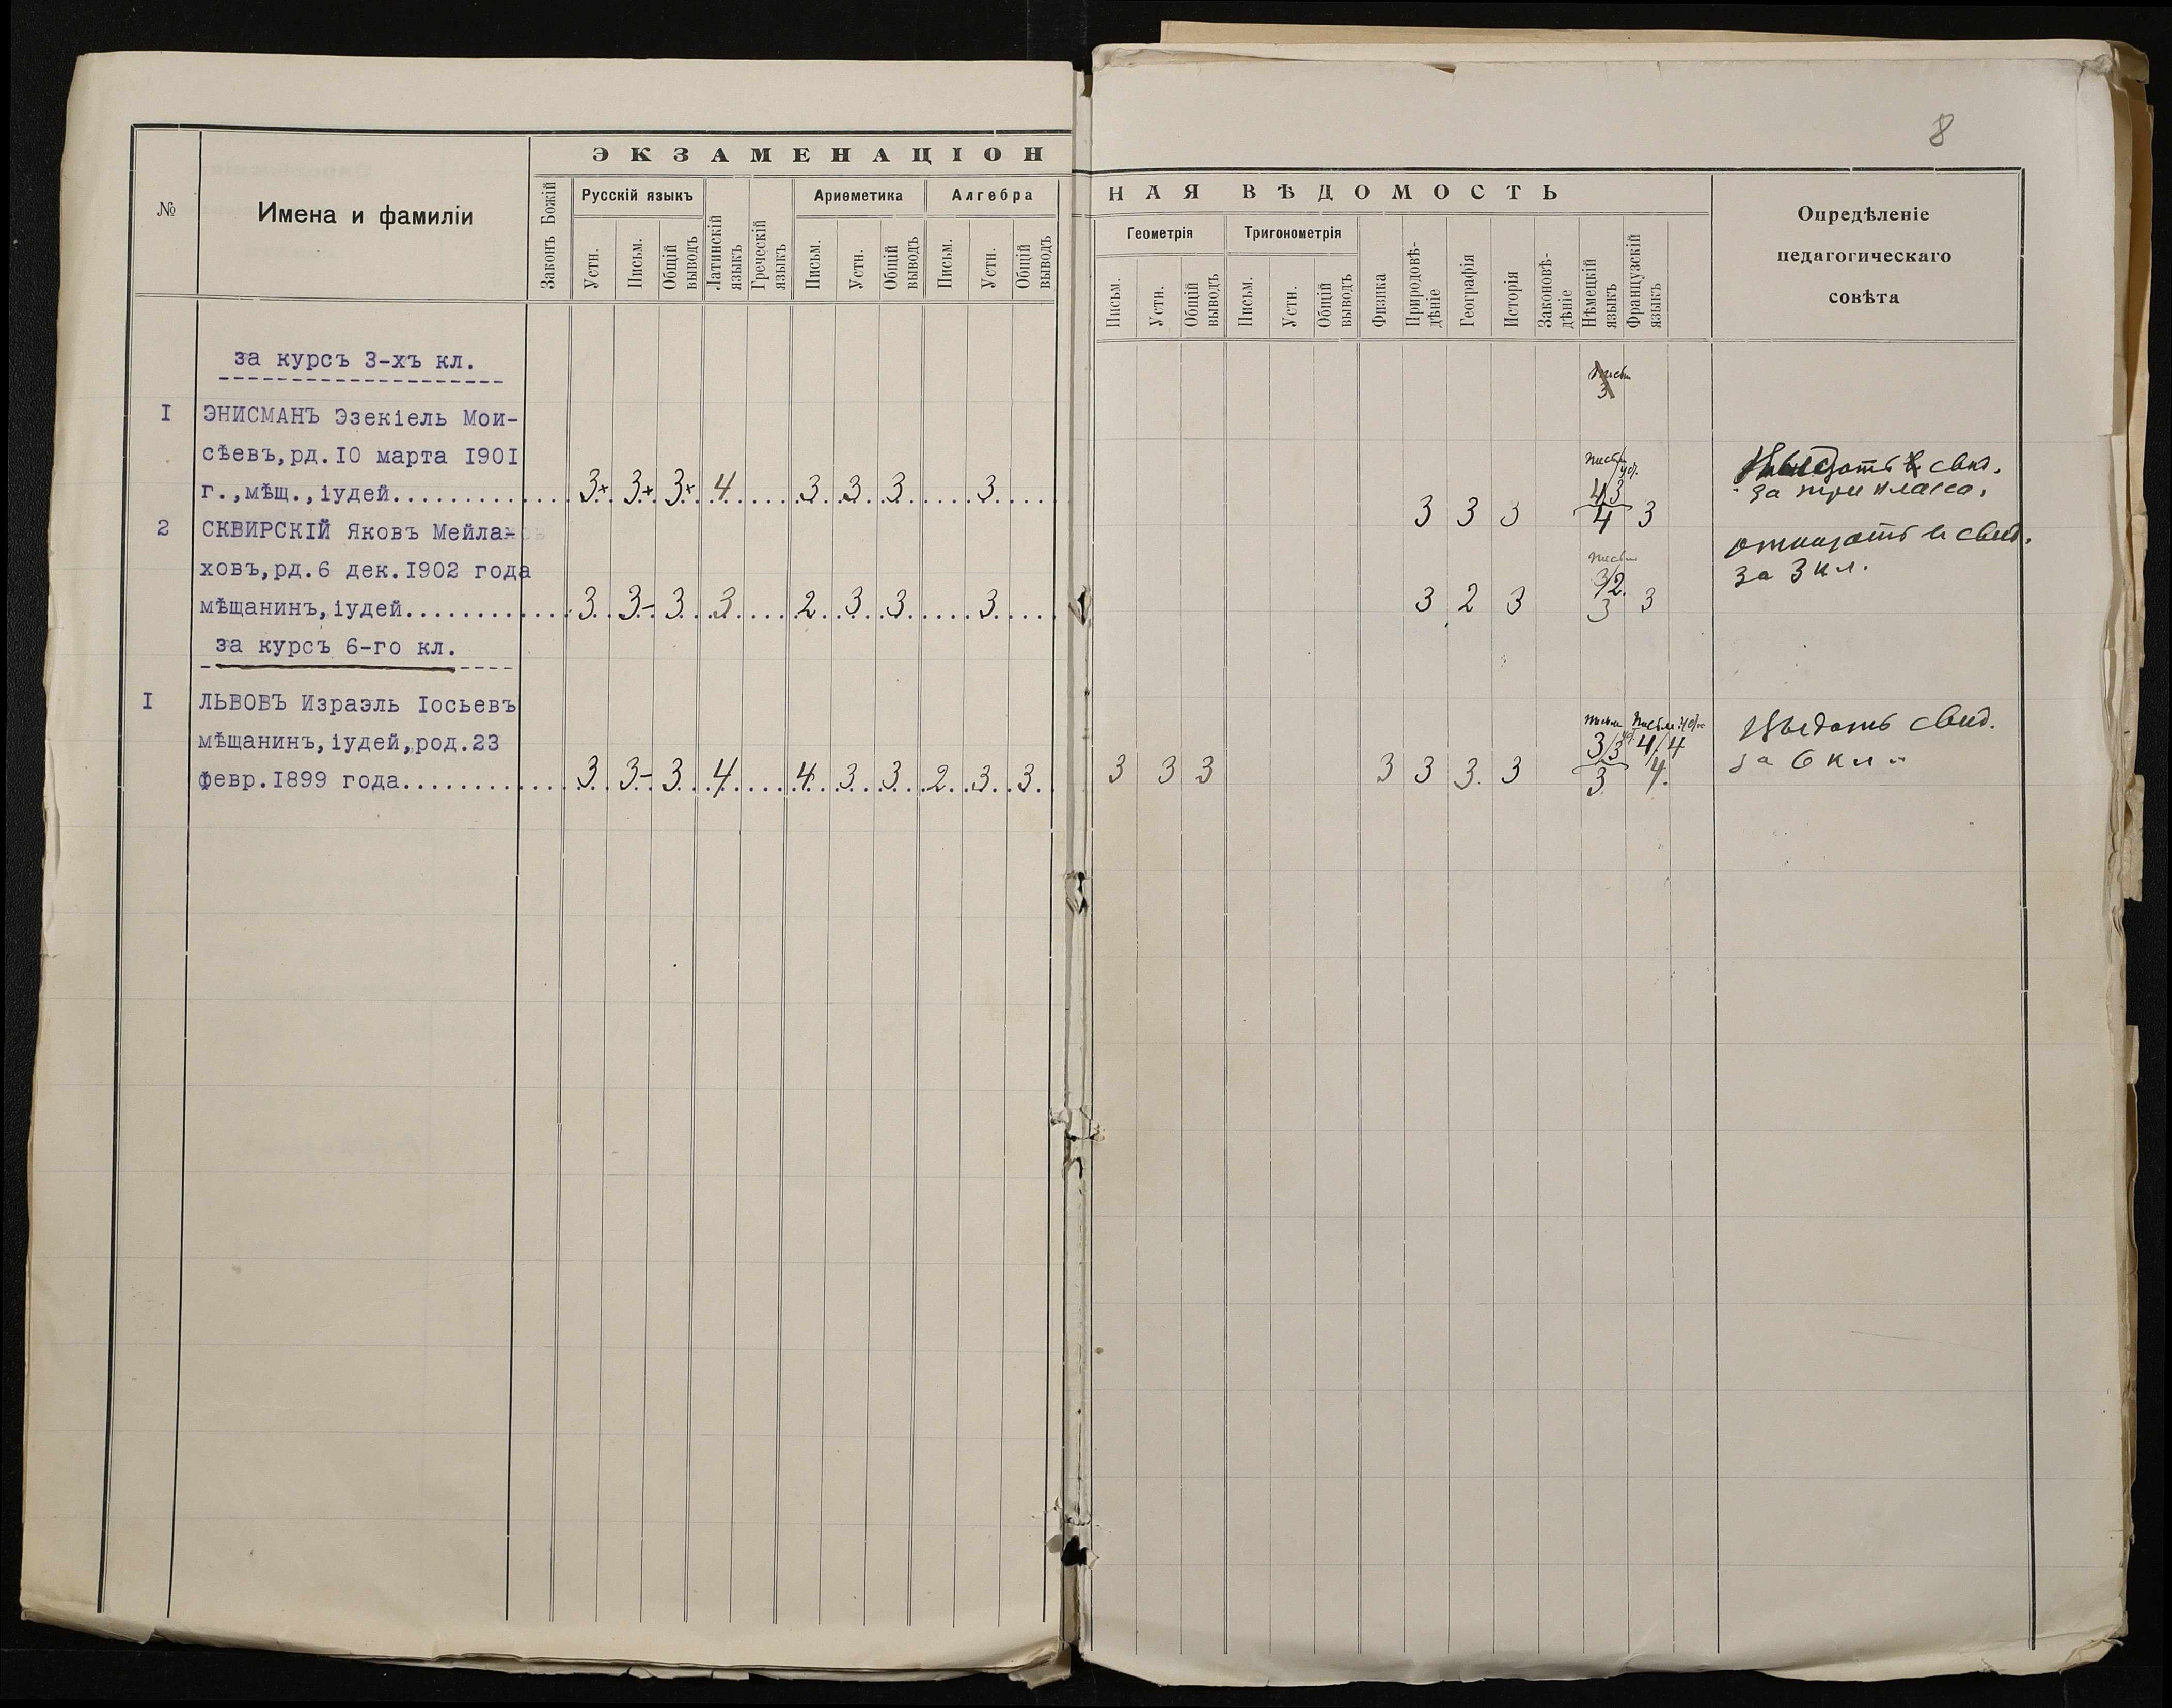 8
ЭКЗАМЕНАЦІОН
НАЯ ВѢДОМОСТЬ
№
Имена и фамиліи
Законъ Божій
Русскій языкъ
Устн.
Письм.
Общій выводъ
Латинскій языкъ
Греческій языкъ
Ариѳметика
Письм.
Устн.
Общій выводъ
Алгебра
Письм.
Устн.
Общій выводъ
Геометрія
Письм.
Устн.
Общій выводъ
Тригонометрія
Письм.
Устн.
Общій выводъ
Физика
Природовѣ-
дѣніе
Географія
Исторія
Законовѣ-
дѣніе
Нѣмецкій языкъ
Французскій языкъ
Опредѣленіе
педагогическаго
совѣта
за курсъ 3-хъ кл.
I ЭНИСМАНЪ Эзекіель Мои-
сѣевъ,рд.IO марта I90I
г.,мѣщ.,іудей............ 3+ 3+ 3+ 4 3 3 3 3 3 3 3 4/3 4 3
свид.
за три класса.
2 СКВИРСКІЙ Яковъ Мейла-
ховъ,рд.6 дек.I902 года
мѣщанинъ,іудей........... 3 3- 3 3 2 3 3 3 3 2 3 3/2. 3 3
отказать в свид.
за 3 кл.
за курсъ 6-го кл.
I ЛЬВОВЪ Израэль Іосьевъ
мѣщанинъ,іудей,род.23
февр.I899 года........... 3 3- 3 4 4 3 3 2 3 3 3 3 3 3 3 3. 3 3/3 3 4/4 4.
Выдать свид.
за 6 кл.